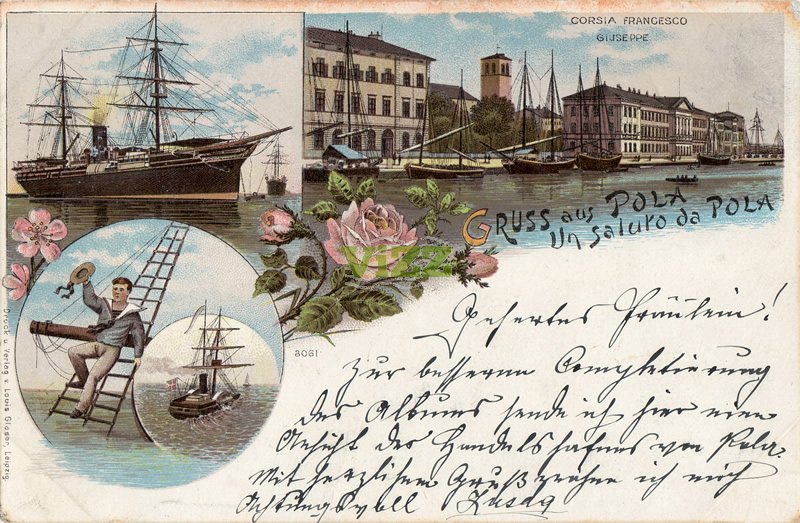 CORSIA FRANCESCO
GIUSEPPE
GRUSS aus POLA
Un saluto da POLA
VIZZ
3061
Druck u. Verlag v. Louis Glaser, Leipzig.
Geehrtes Fräulein!
Zur besseren Completierung
des Albums sende ich hier eine
Ansicht des Handelshafens von Pola.
Mit herzlichem Gruß ich mich
Achtungsvoll